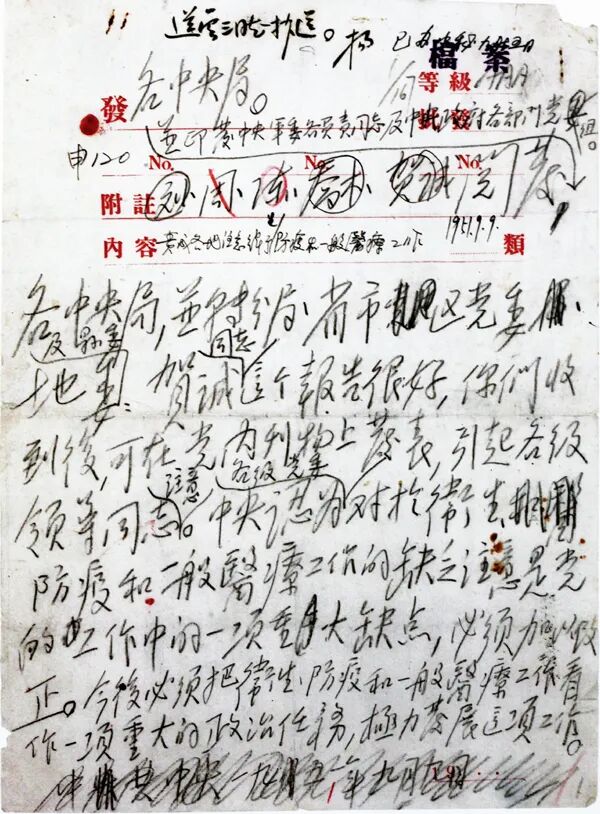 送雲三膳抄送。 楊
檔案
等級
各中央局。
發
並印發中央軍委各負責同志及中央政府各部門党組。
申120 No. No. No.
附註 劉 周 陳 賀誠 閱 發
內容 責成各地注意衛生防疫和一般醫療工作 1951.9.9. 類
各中央局,並轉分局,省市區党委,
及縣委 同志
地委:賀誠這个報告很好,你們收
到後,可在党內刊物上發表,引起各级
注意 各级党委
領導同志。中央認為对於衛生
防疫和一般醫療工作的缺乏注意是党
的工作中的一項重大缺点,必須加以改
正。今後必須把衛生防疫和一般醫療工作看
作一項重大的政治任務,極力發展這項工作。
中共中央 一九五一年九月九日